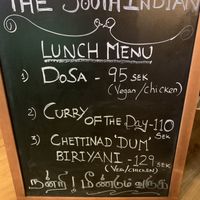 THE SOUTH INDIAN
LUNCH MENU
1) DOSA - 95 SEK
(Vegan/chicken)
2) CURRY
OF THE DAY-110
SEK
3) CHETTINAD 'DUM'
BIRIYANI -129 SEK
(VEG/CHICKEN)
நன்றி | மீண்டும் வருக